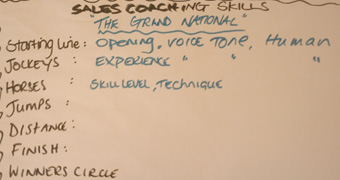 SALES COACHING SKILLS
"THE GRAND NATIONAL"
Starting Line: Opening, VOICE TONE, Human
JOCKEYS : EXPERIENCE " " "
HORSES : SKILL LEVEL, TECHNIQUE
JUMPS :
DISTANCE:
FINISH:
WINNERS CIRCLE